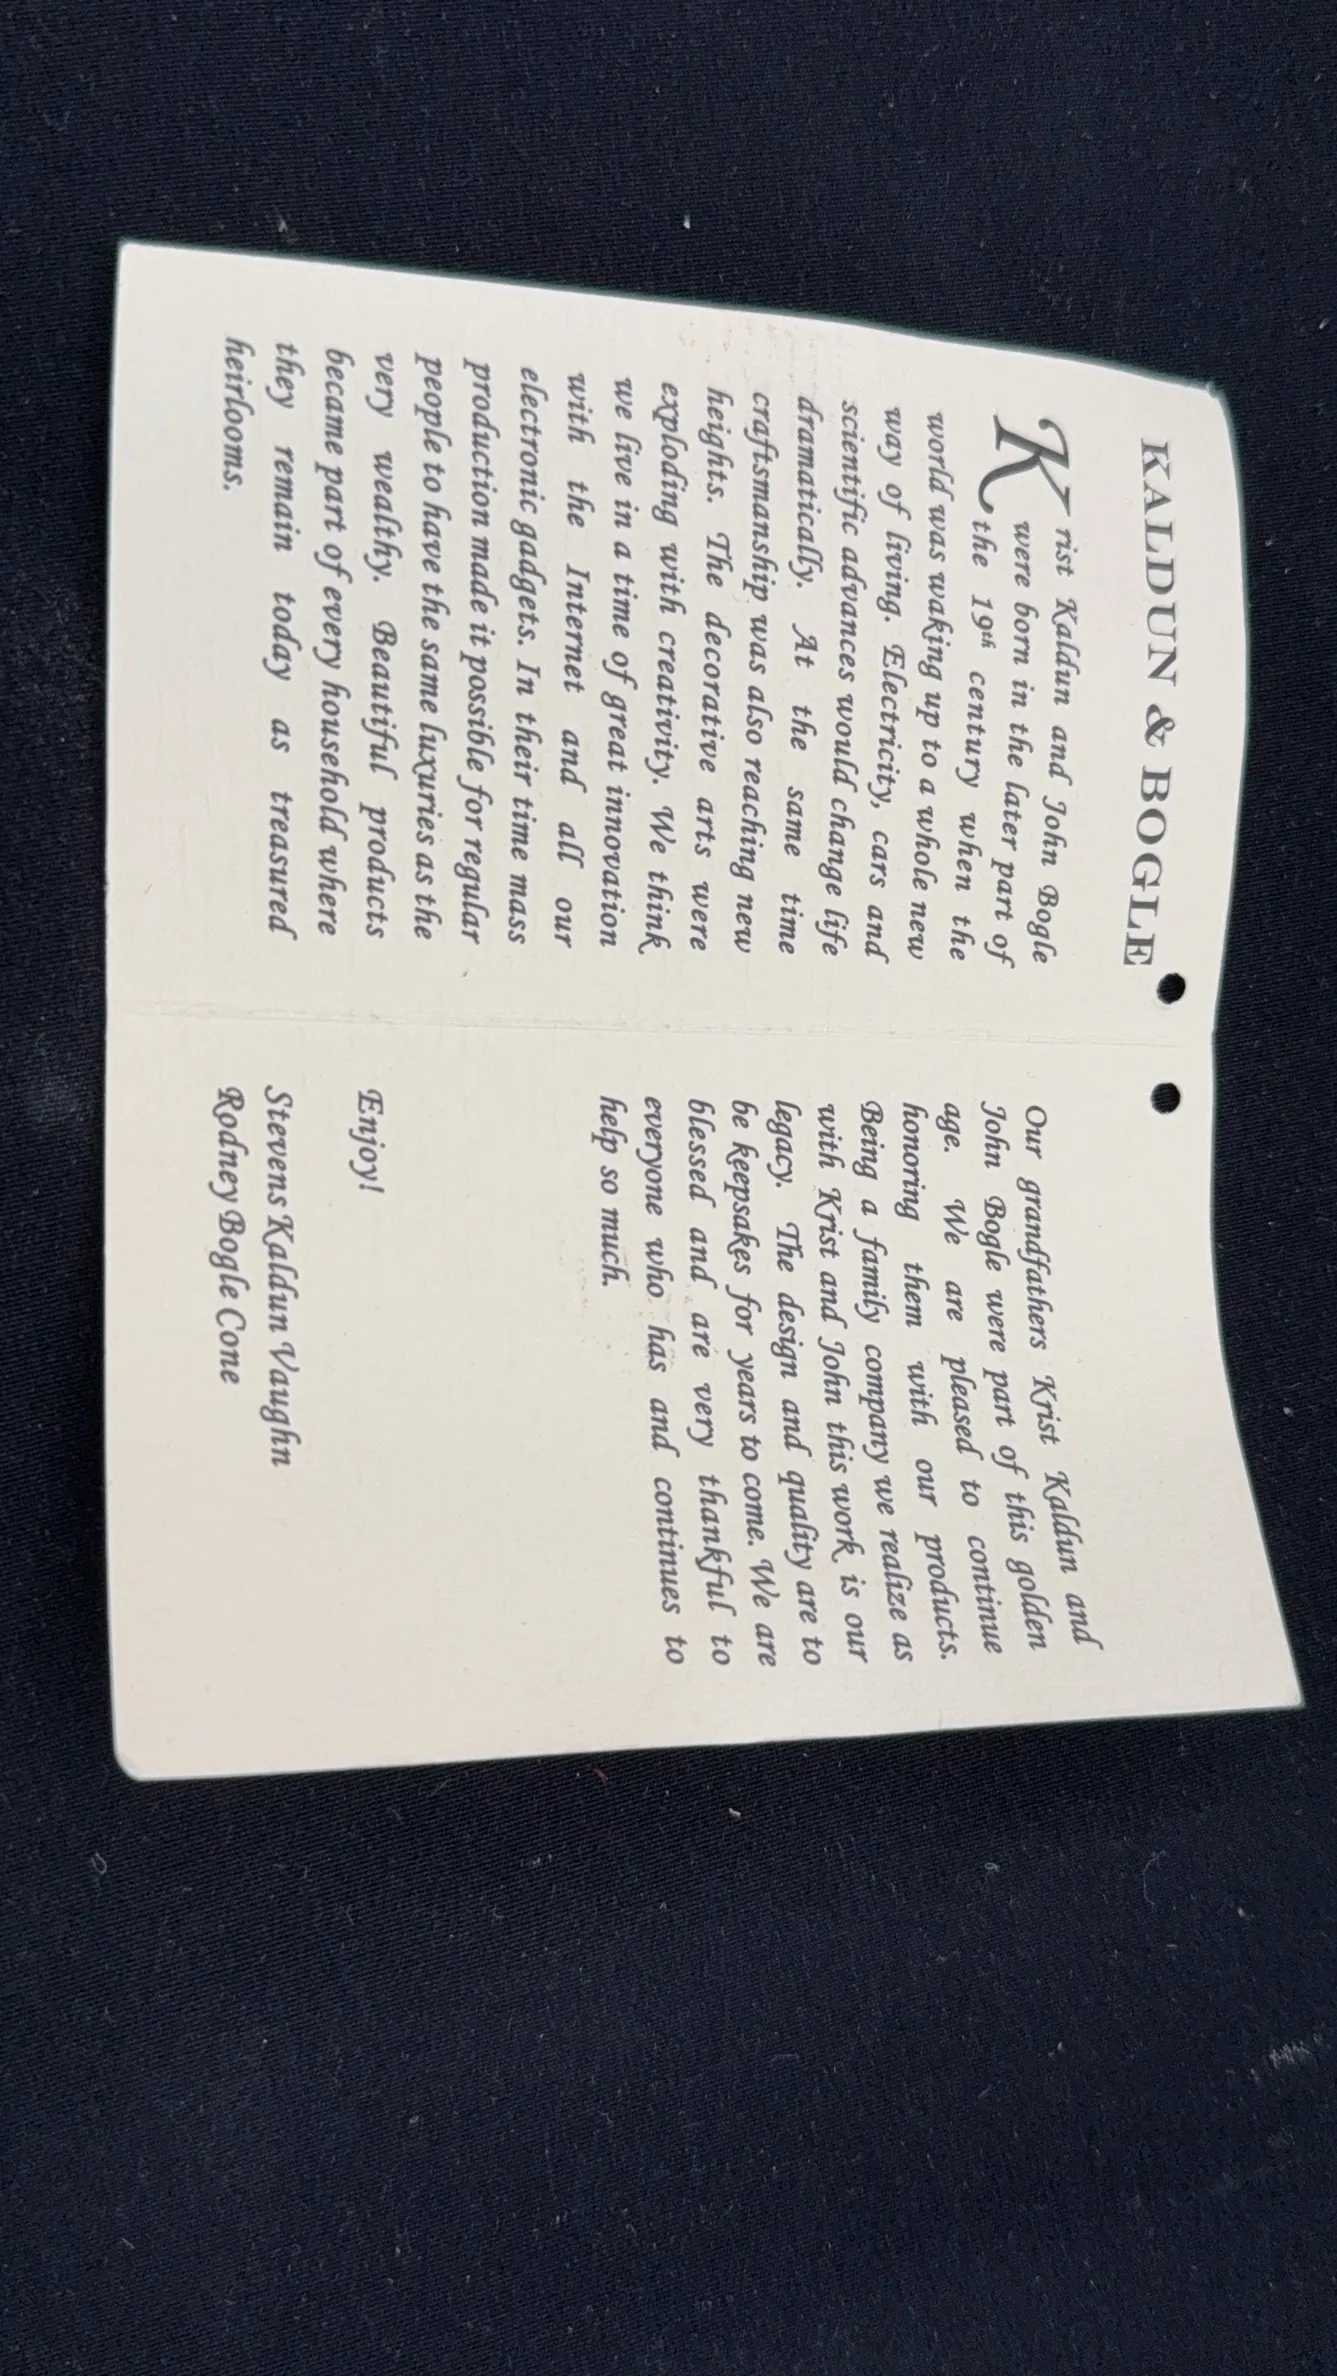 KALDUN & BOGLE
Krist Kaldun and John Bogle
were born in the later part of
the 19th century when the
world was waking up to a whole new
way of living. Electricity, cars and
scientific advances would change life
dramatically. At the same time
craftsmanship was also reaching new
heights. The decorative arts were
exploding with creativity. We think
we live in a time of great innovation
with the Internet and all our
electronic gadgets. In their time mass
production made it possible for regular
people to have the same luxuries as the
very wealthy. Beautiful products
became part of every household where
they remain today as treasured
heirlooms.
Our grandfathers Krist Kaldun and
John Bogle were part of this golden
age. We are pleased to continue
honoring them with our products.
Being a family company we realize as
with Krist and John this work is our
legacy. The design and quality are to
be keepsakes for years to come. We are
blessed and are very thankful to
everyone who has and continues to
help so much.
Enjoy!
Stevens Kaldun Vaughn
Rodney Bogle Cone